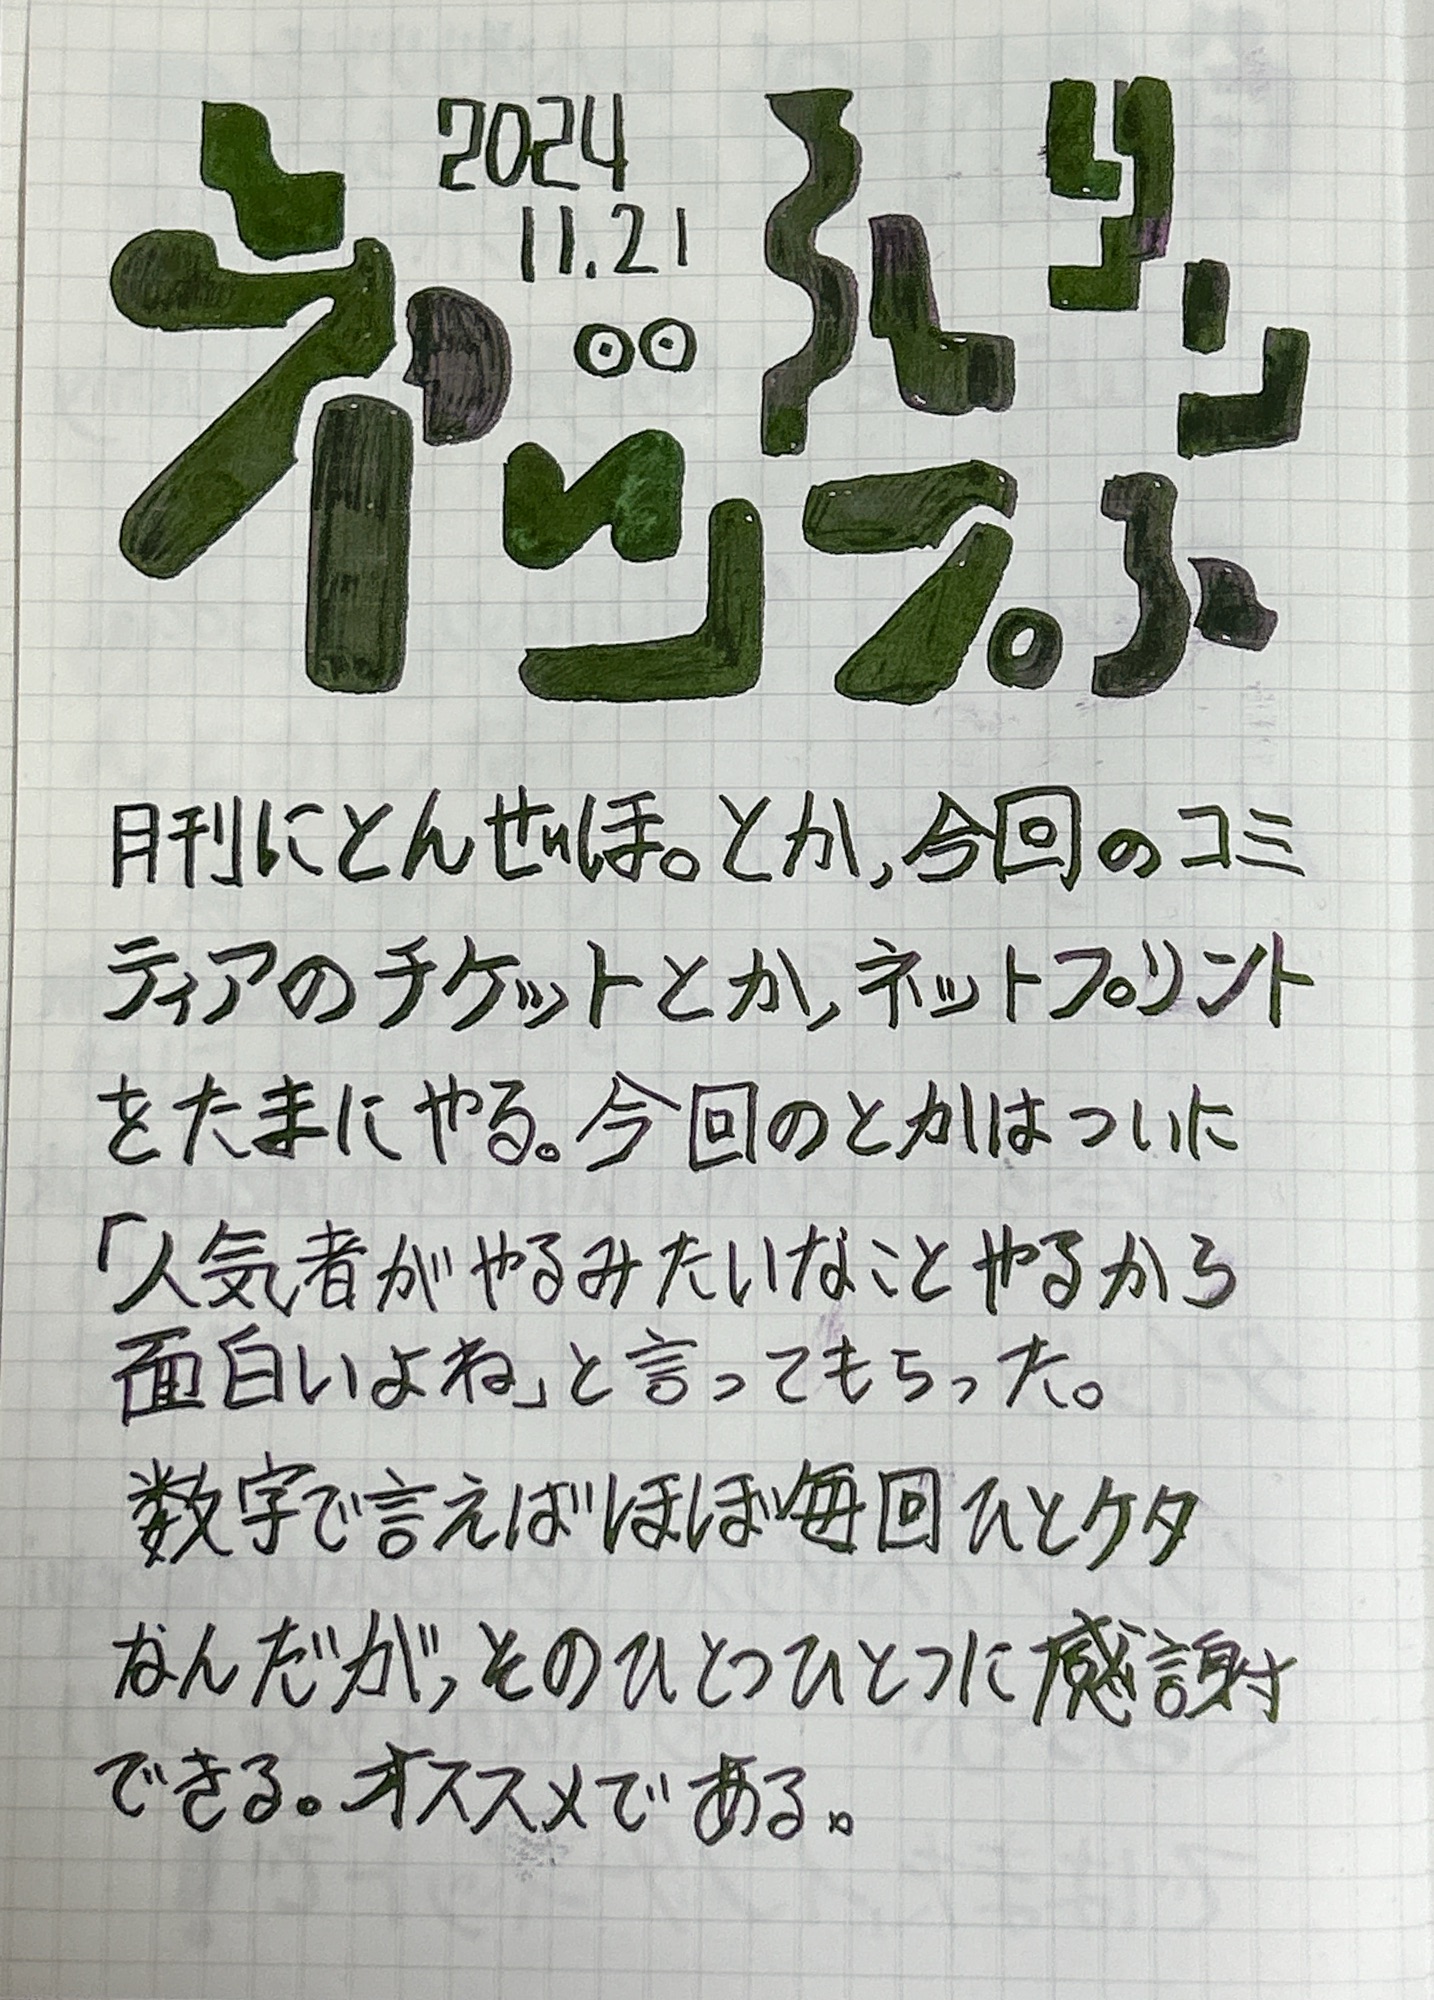 2024
11.21
ネットプリントプ
月刊にとんせいほ。とか,今回のコミ
ティアのチケットとか,ネットプリント
をたまにやる。今回のとかはついに
「人気者がやるみたいなことやるから
面白いよね」と言ってもらった。
数字で言えばほぼ毎回ひとケタ
なんだが,そのひとつひとつに感謝
できる。オススメである。